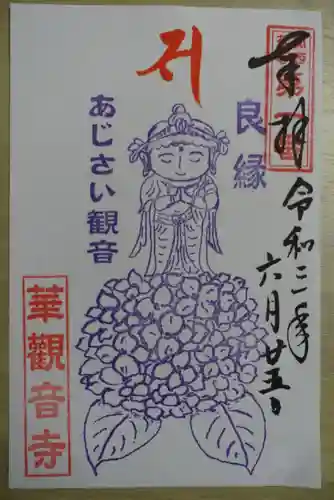 奉拝
令和二年
六月廿五日
良縁
あじさい観音
華觀音寺